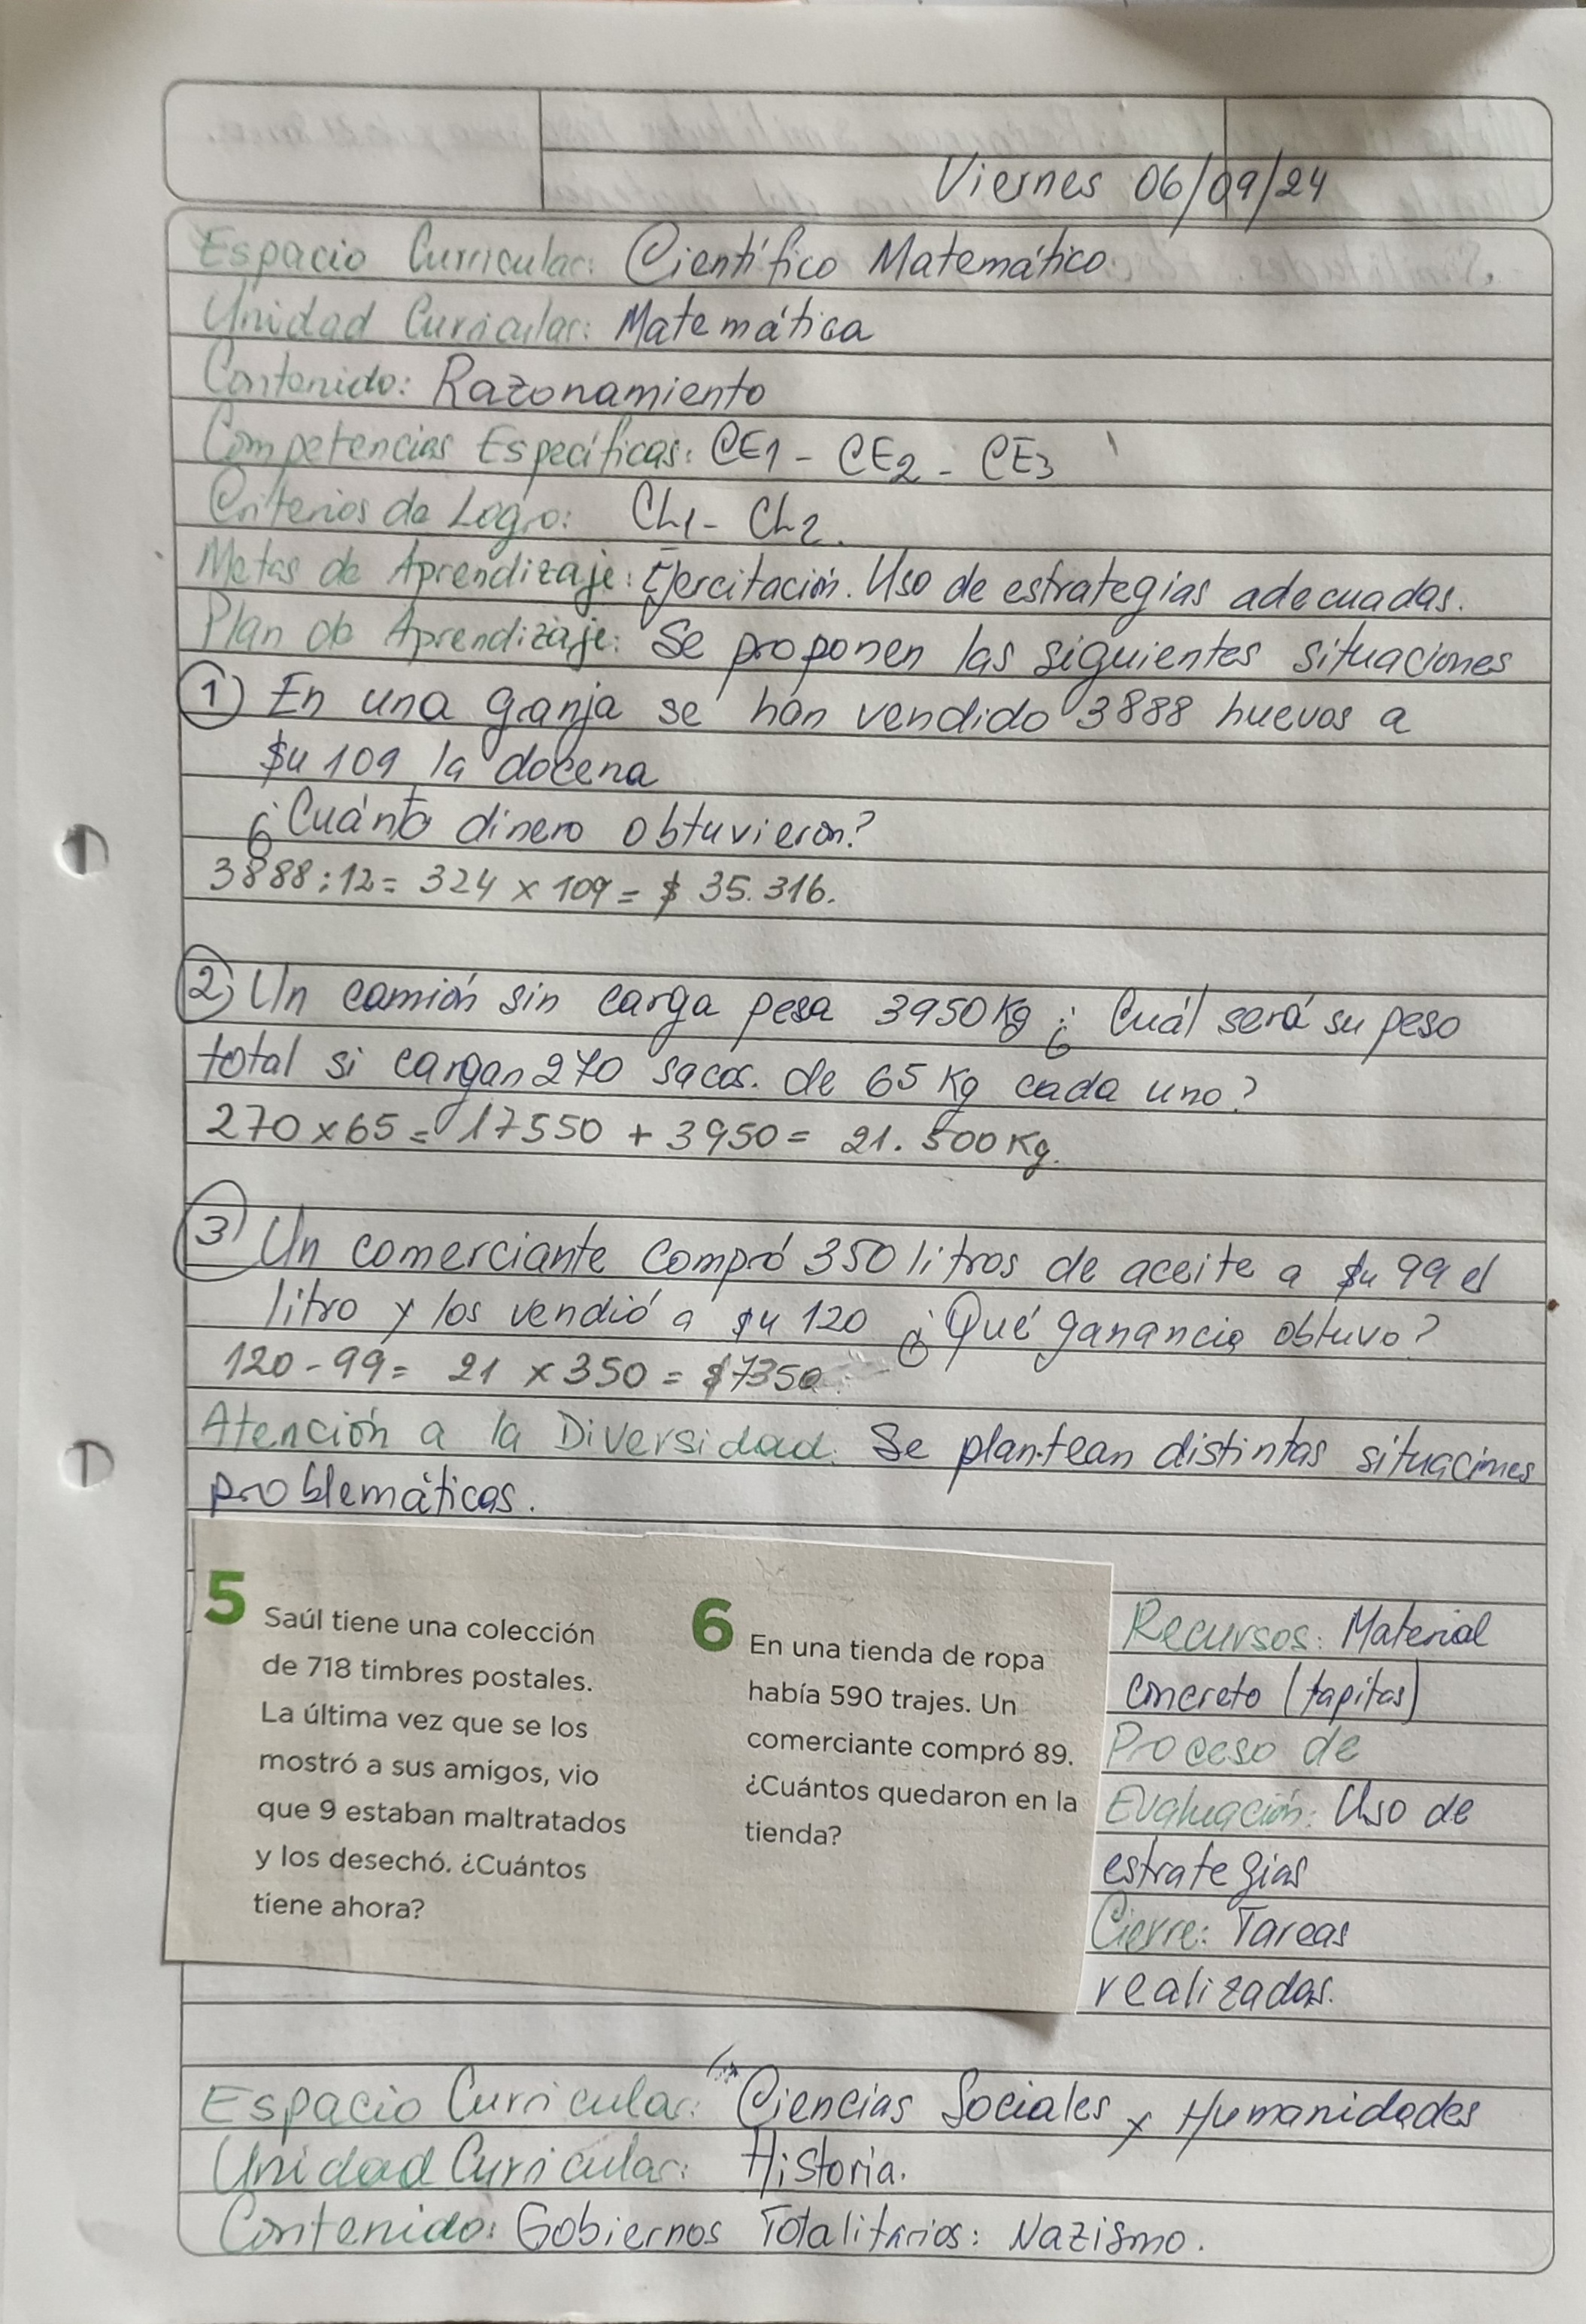 Viernes 06/09/24
Espacio Curricular: Científico Matemático
Unidad Curricular: Matemática
Contenido: Razonamiento
Competencias Específicas: CE1 - CE2 - CE3
Criterios de Logro: CL1 - CL2.
Metas de Aprendizaje: Ejercitación. Uso de estrategias adecuadas.
Plan de Aprendizaje: Se proponen las siguientes situaciones
1) En una granja se han vendido 3888 huevos a
$u 109 la docena
¿Cuánto dinero obtuvieron?
3888:12= 324 x 109 = $ 35.316.
2) Un camión sin carga pesa 3950 Kg ¿Cuál será su peso
total si cargan 270 sacos. de 65 Kg cada uno?
270 x 65 = 17550 + 3950 = 21.500 Kg.
3) Un comerciante compró 350 litros de aceite a $u 99 el
litro y los vendió a $u 120 ¿Qué ganancia obtuvo?
120 - 99 = 21 x 350 = $7350
Atención a la Diversidad: Se plantean distintas situaciones
problemáticas.
5 Saúl tiene una colección
de 718 timbres postales.
La última vez que se los
mostró a sus amigos, vio
que 9 estaban maltratados
y los desechó. ¿Cuántos
tiene ahora?
6 En una tienda de ropa
había 590 trajes. Un
comerciante compró 89.
¿Cuántos quedaron en la
tienda?
Recursos: Material
concreto (tapitas)
Proceso de
Evaluación: Uso de
estrategias
Cierre: Tareas
realizadas.
Espacio Curricular: Ciencias Sociales y Humanidades
Unidad Curricular: Historia.
Contenido: Gobiernos Totalitarios: Nazismo.